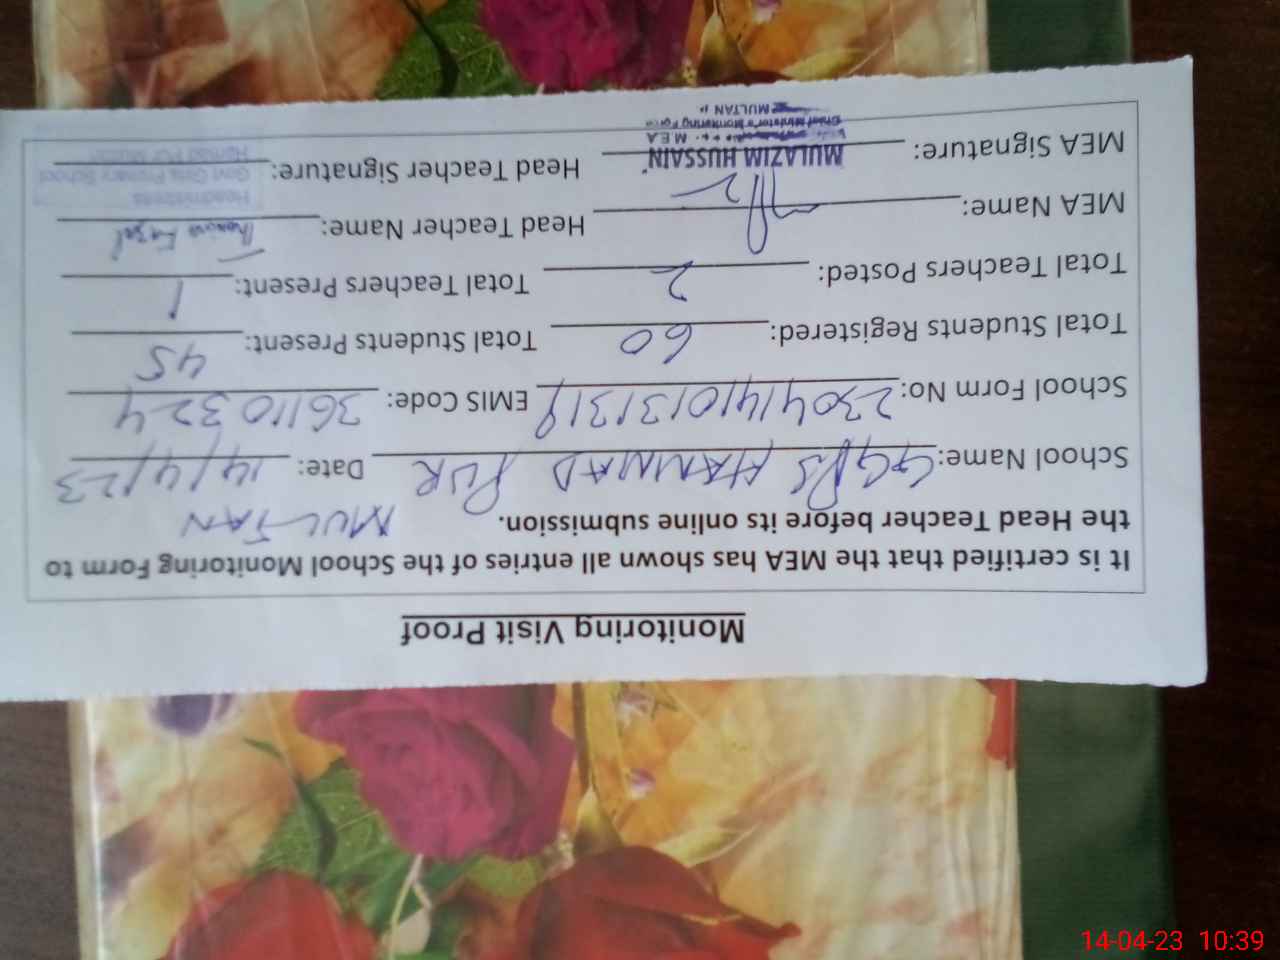 Monitoring Visit Proof
It is certified that the MEA has shown all entries of the School Monitoring Form to
the Head Teacher before its online submission. MULTAN
School Name: GGPS HAMMAD PUR Date: 14/4/23
School Form No: EMIS Code: 36110324
Total Students Registered: 60 Total Students Present: 45
Total Teachers Posted: 2 Total Teachers Present: 1
MEA Name: Head Teacher Name:
MEA Signature: Head Teacher Signature:
MULAZIM HUSSAIN
MEA
Chief Minister's Monitoring Force
MULTAN
Headmistress
Govt Girls Primary School
Hamad Pur Multan
14-04-23 10:39